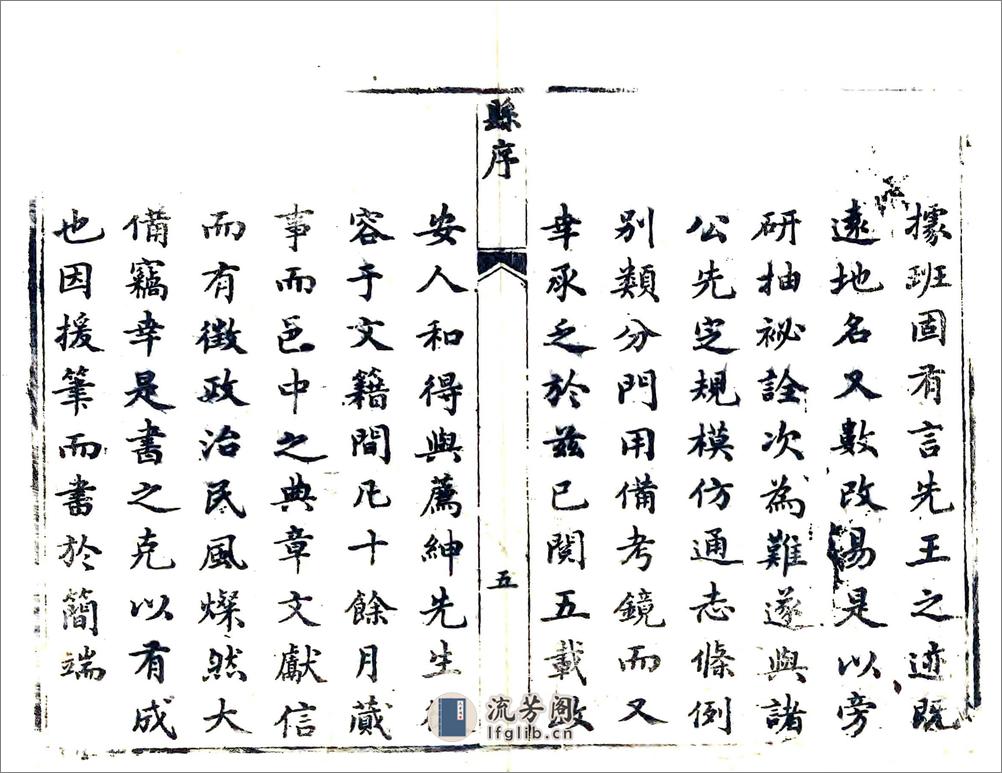 據班固有言先王之迹既
遠地名又數改易是以旁
研抽祕詮次為難遂與諸
公先定規模仿通志條例
別類分門用備考鏡而又
幸承乏於茲已閱五載政
縣序
五
安人和得與薦紳先生
容于文籍間凡十餘月蕆
事而邑中之典章文獻信
而有徵政治民風燦然大
備竊幸是書之克以有成
也因援筆而書於簡端
流芳阁
lfglib.cn